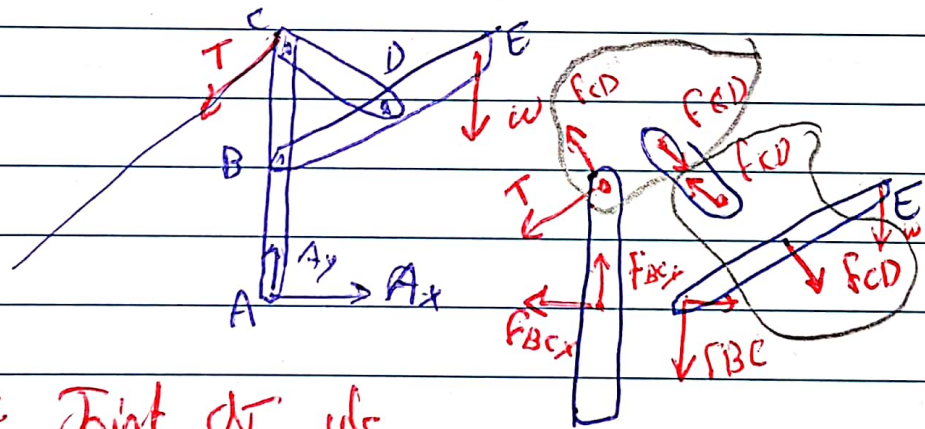 C
T
D
E
W
B
Ay
A
Ax
FCD
FCD
FCD
T
FBCy
FBCx
E
W
FCD
FBC
Joint